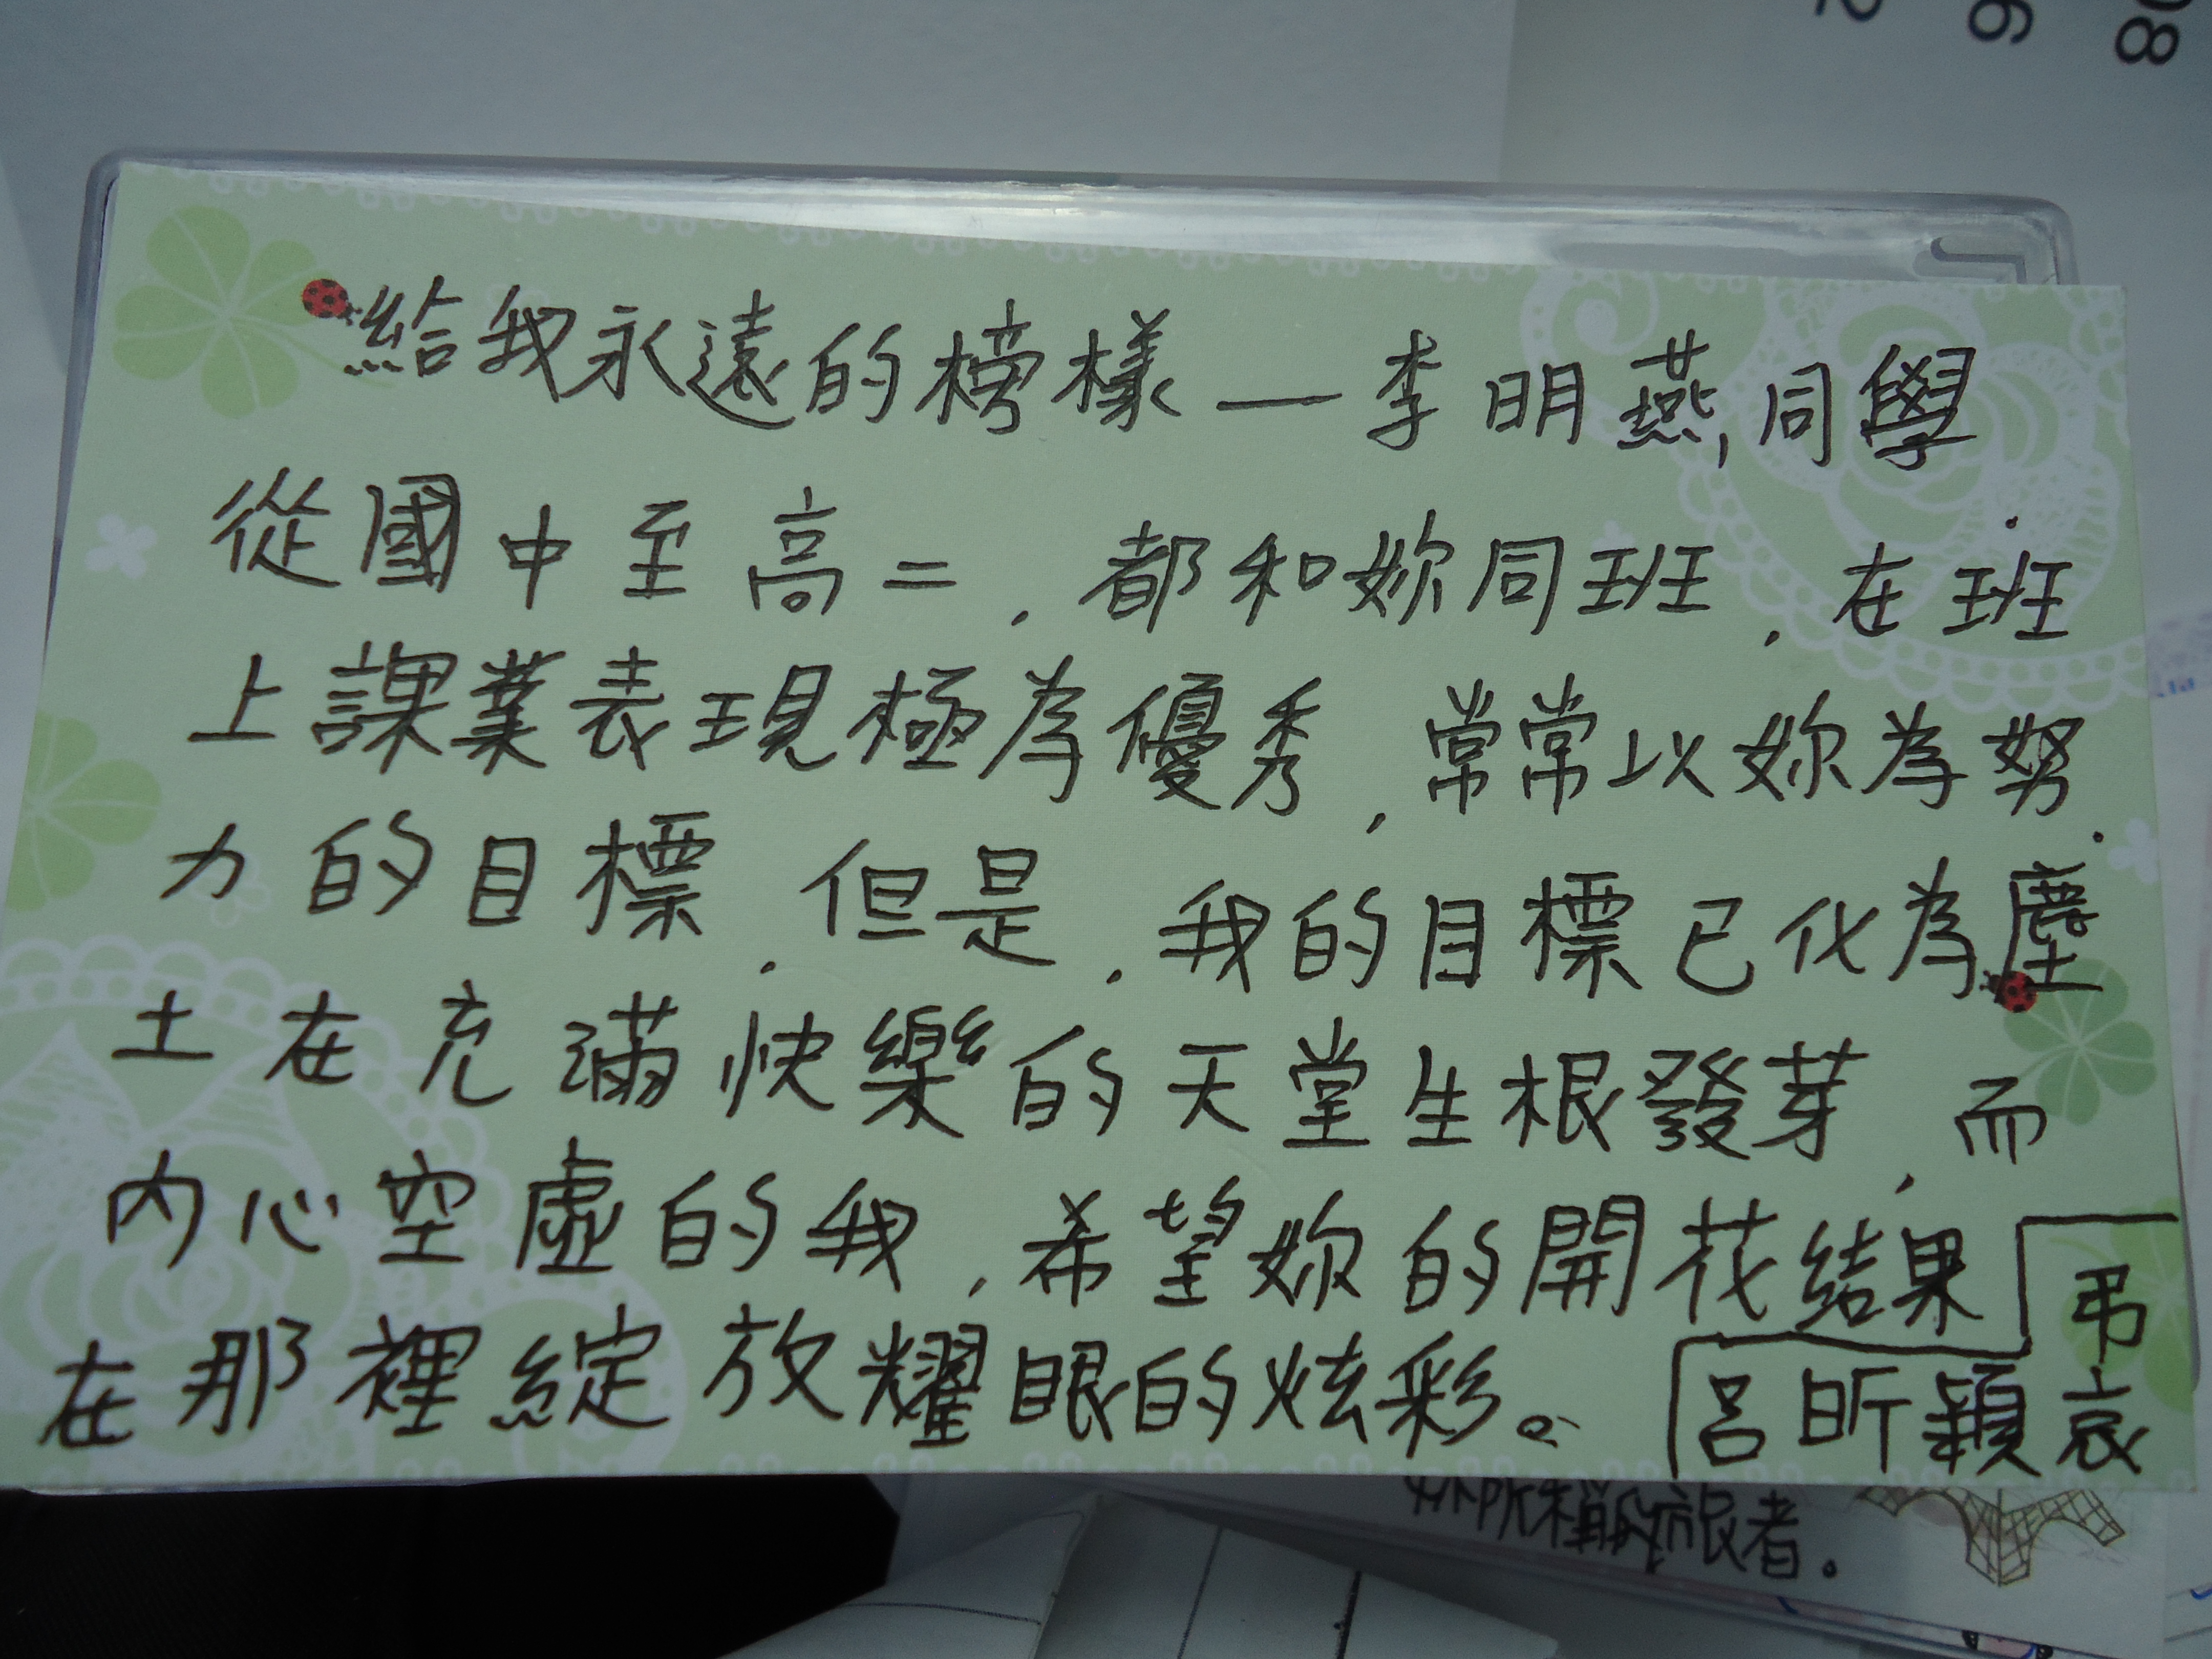 08
6
2
給我永遠的榜樣—李明燕,同學
從國中至高二,都和妳同班,在班
上課業表現極為優秀,常常以妳為努
力的目標,但是,我的目標已化為塵
土在充滿快樂的天堂生根發芽,而
內心空虛的我,希望妳的開花結果
在那裡綻放耀眼的炫彩。
呂昕穎
弔哀
者。